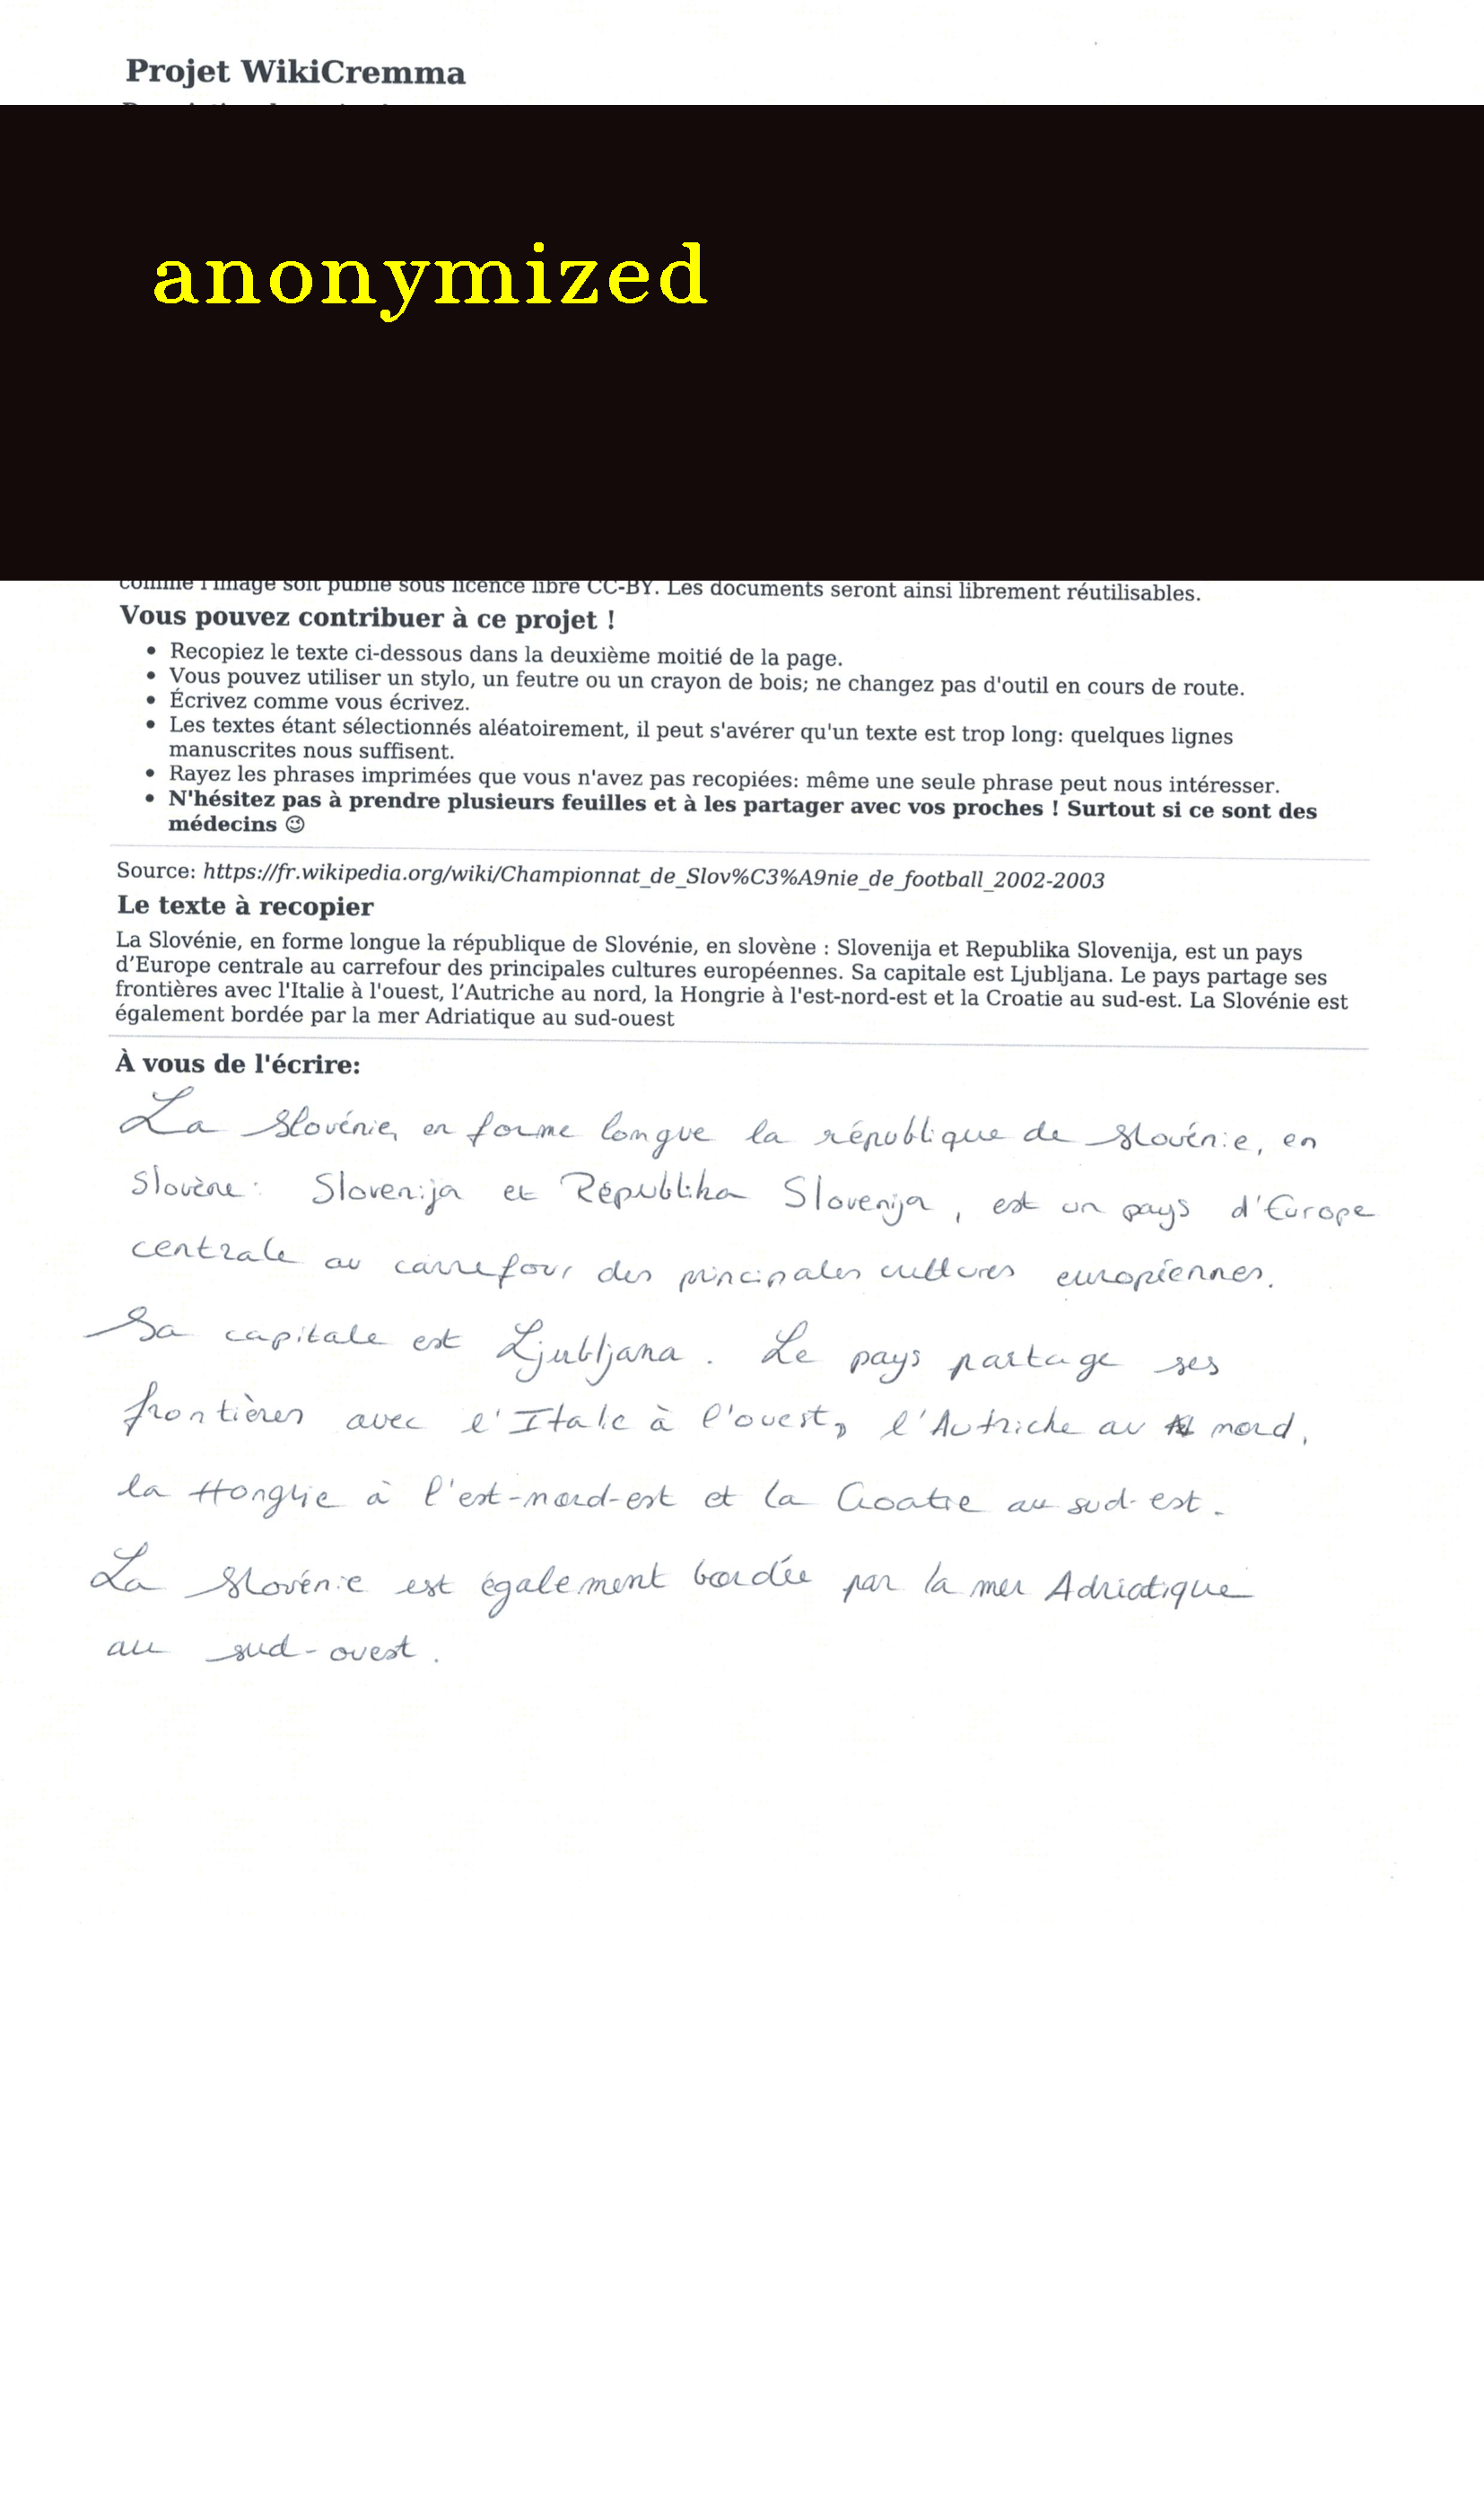 Projet WikiCremma
anonymized
comme l'image soit publié sous licence libre CC-BY. Les documents seront ainsi librement réutilisables.
Vous pouvez contribuer à ce projet !
• Recopiez le texte ci-dessous dans la deuxième moitié de la page.
• Vous pouvez utiliser un stylo, un feutre ou un crayon de bois; ne changez pas d'outil en cours de route.
• Écrivez comme vous écrivez.
• Les textes étant sélectionnés aléatoirement, il peut s'avérer qu'un texte est trop long: quelques lignes
manuscrites nous suffisent.
• Rayez les phrases imprimées que vous n'avez pas recopiées: même une seule phrase peut nous intéresser.
• N'hésitez pas à prendre plusieurs feuilles et à les partager avec vos proches ! Surtout si ce sont des
médecins 😉
Source: https://fr.wikipedia.org/wiki/Championnat_de_Slov%C3%A9nie_de_football_2002-2003
Le texte à recopier
La Slovénie, en forme longue la république de Slovénie, en slovène : Slovenija et Republika Slovenija, est un pays
d’Europe centrale au carrefour des principales cultures européennes. Sa capitale est Ljubljana. Le pays partage ses
frontières avec l'Italie à l'ouest, l’Autriche au nord, la Hongrie à l'est-nord-est et la Croatie au sud-est. La Slovénie est
également bordée par la mer Adriatique au sud-ouest
À vous de l'écrire:
La Slovénie, en forme longue la république de Slovénie, en
slovène : Slovenija et Républika Slovenija, est un pays d'Europe
centrale au carrefour des principales cultures européennes.
Sa capitale est Ljubljana. Le pays partage ses
frontières avec l'Italie à l'ouest, l'Autriche au nord,
la Hongrie à l'est-nord-est et la Croatie au sud-est.
La Slovénie est également bordée par la mer Adriatique
au sud-ouest.